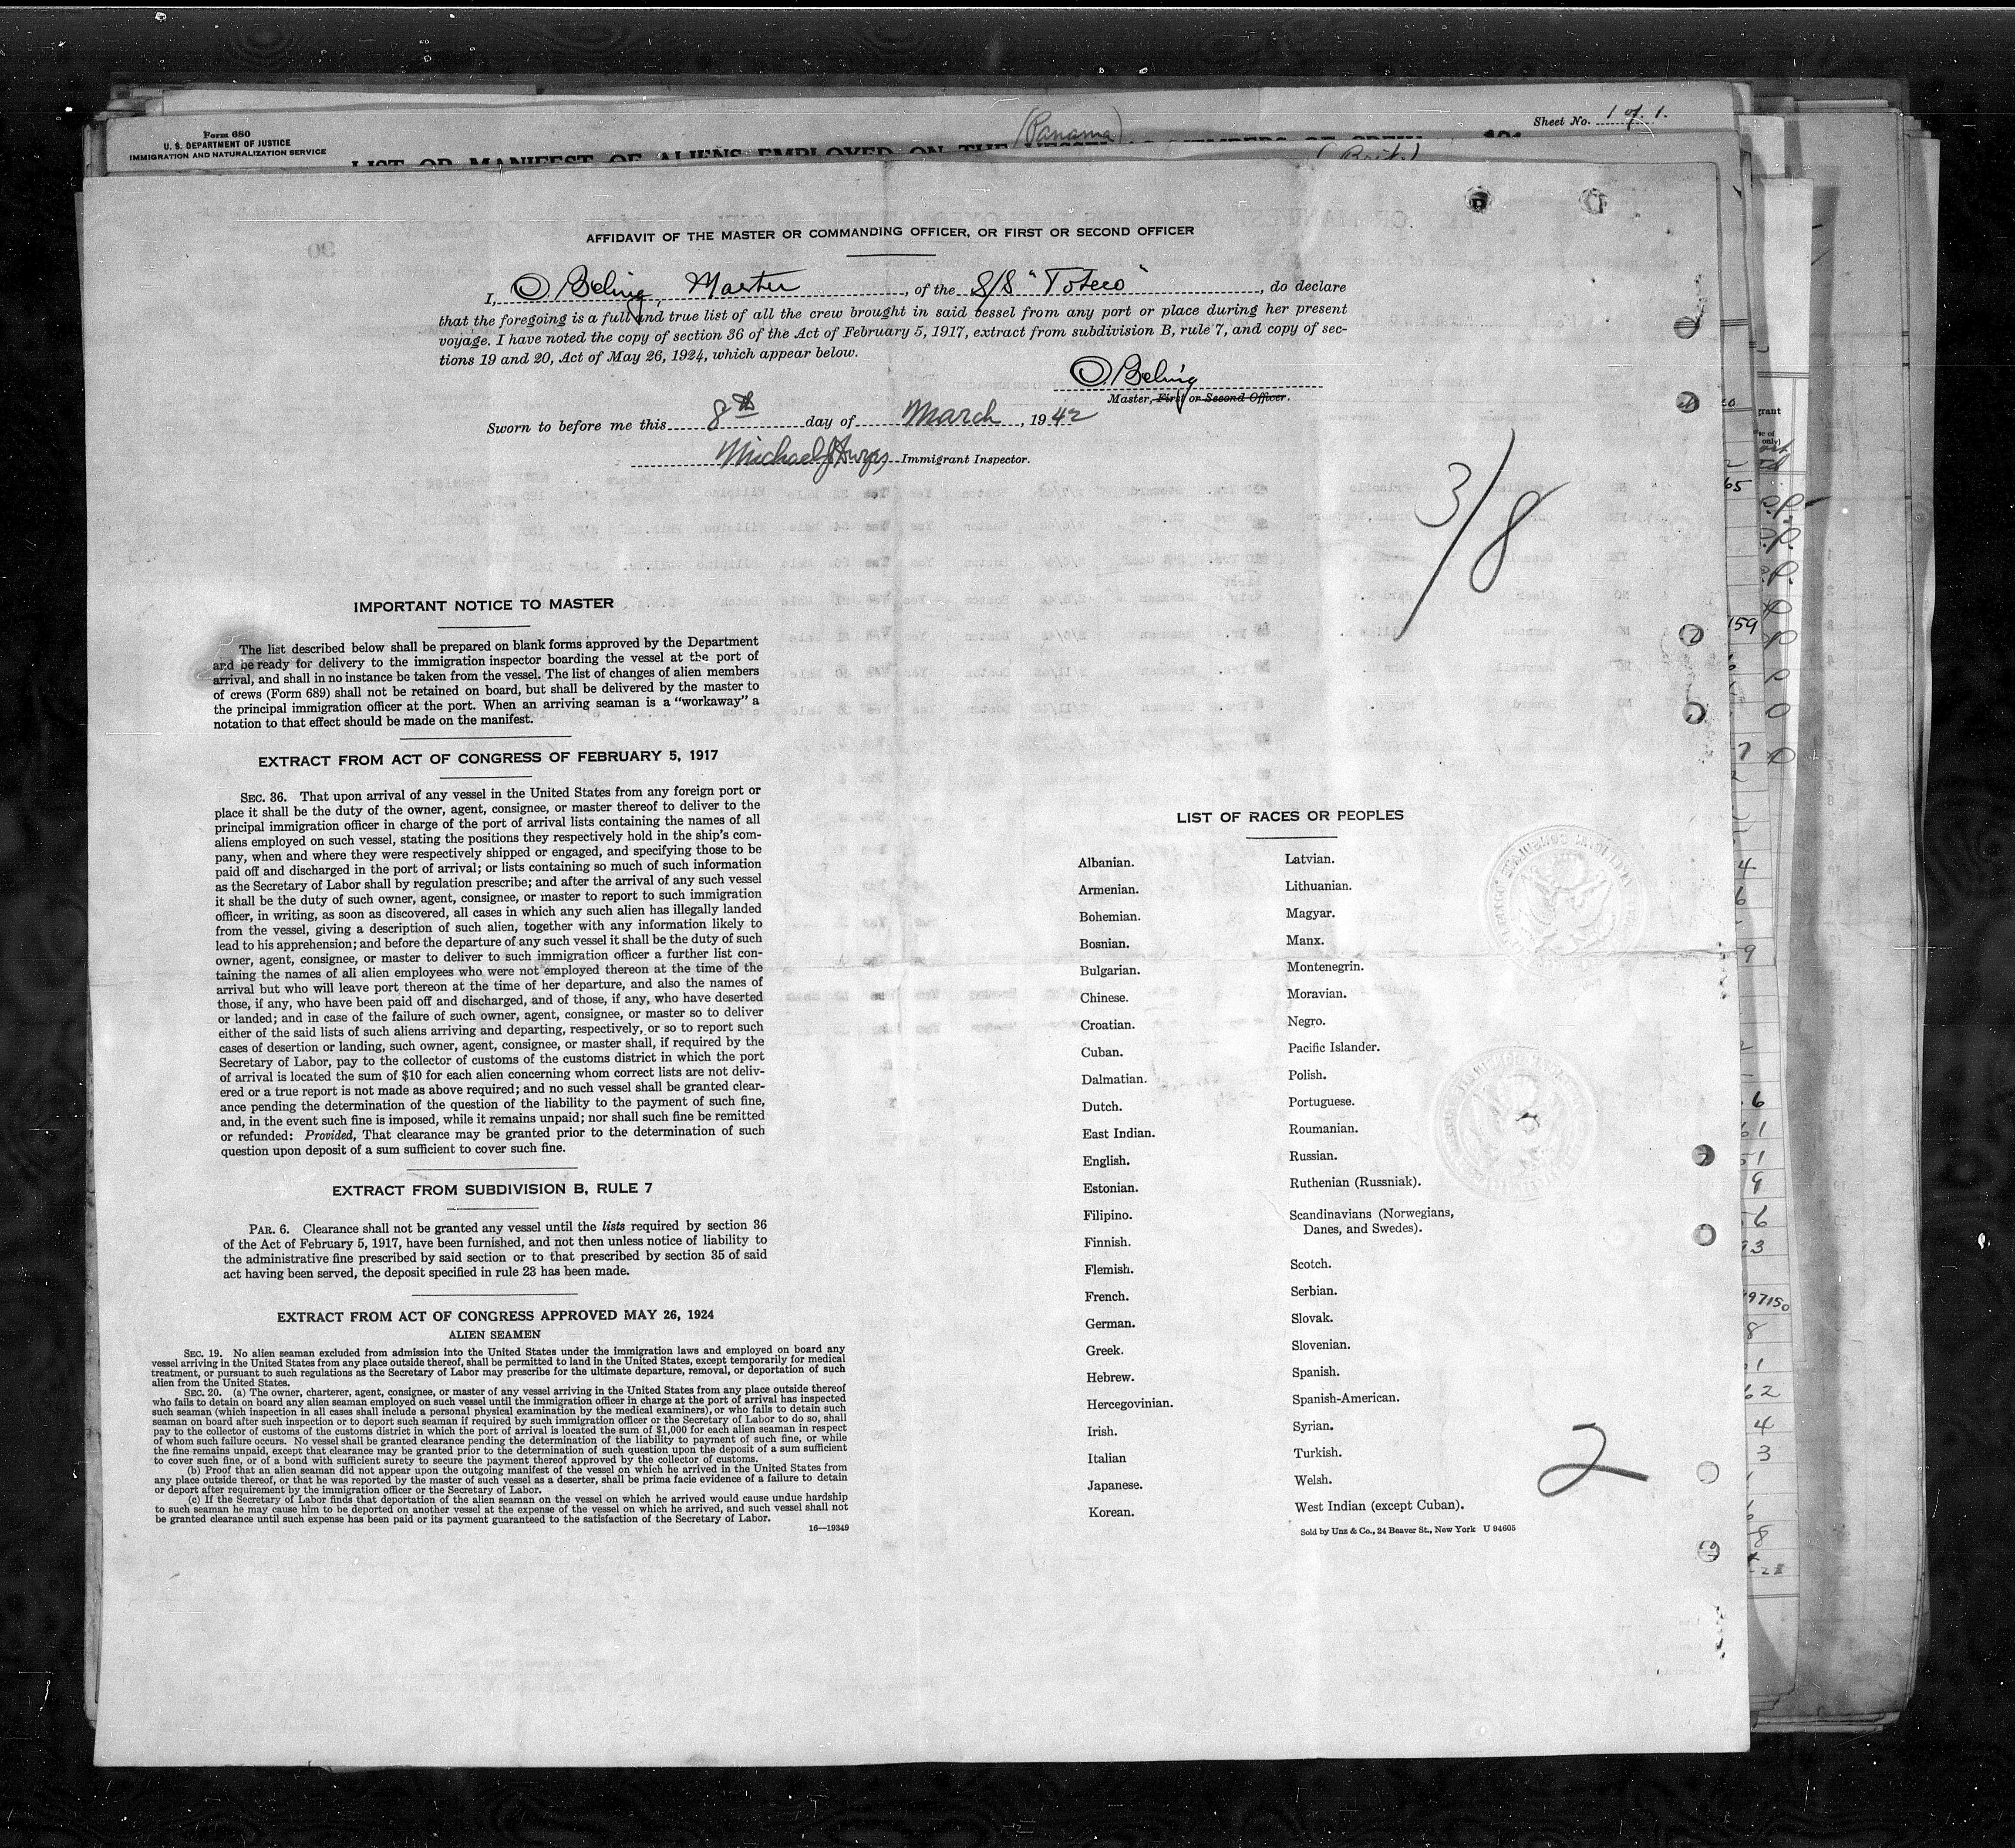 Form 680
U. S. DEPARTMENT OF JUSTICE
IMMIGRATION AND NATURALIZATION SERVICE
(Panama)
Sheet No. 1 of 1.
LIST OR MANIFEST OF ALIENS EMPLOYED ON THE VESSEL AS MEMBERS OF CREW
(Brit.)
AFFIDAVIT OF THE MASTER OR COMMANDING OFFICER, OR FIRST OR SECOND OFFICER
I, O. Beling, Master, of the S/S "Toteco", do declare
that the foregoing is a full and true list of all the crew brought in said vessel from any port or place during her present
voyage. I have noted the copy of section 36 of the Act of February 5, 1917, extract from subdivision B, rule 7, and copy of sec-
tions 19 and 20, Act of May 26, 1924, which appear below.
O. Beling
Master, First or Second Officer.
Sworn to before me this 8th day of March, 1942
Michael J. Immigrant Inspector.
3/8
IMPORTANT NOTICE TO MASTER
The list described below shall be prepared on blank forms approved by the Department
and be ready for delivery to the immigration inspector boarding the vessel at the port of
arrival, and shall in no instance be taken from the vessel. The list of changes of alien members
of crews (Form 689) shall not be retained on board, but shall be delivered by the master to
the principal immigration officer at the port. When an arriving seaman is a "workaway" a
notation to that effect should be made on the manifest.
EXTRACT FROM ACT OF CONGRESS OF FEBRUARY 5, 1917
SEC. 36. That upon arrival of any vessel in the United States from any foreign port or
place it shall be the duty of the owner, agent, consignee, or master thereof to deliver to the
principal immigration officer in charge of the port of arrival lists containing the names of all
aliens employed on such vessel, stating the positions they respectively hold in the ship's com-
pany, when and where they were respectively shipped or engaged, and specifying those to be
paid off and discharged in the port of arrival; or lists containing so much of such information
as the Secretary of Labor shall by regulation prescribe; and after the arrival of any such vessel
it shall be the duty of such owner, agent, consignee, or master to report to such immigration
officer, in writing, as soon as discovered, all cases in which any such alien has illegally landed
from the vessel, giving a description of such alien, together with any information likely to
lead to his apprehension; and before the departure of any such vessel it shall be the duty of such
owner, agent, consignee, or master to deliver to such immigration officer a further list con-
taining the names of all alien employees who were not employed thereon at the time of the
arrival but who will leave port thereon at the time of her departure, and also the names of
those, if any, who have been paid off and discharged, and of those, if any, who have deserted
or landed; and in case of the failure of such owner, agent, consignee, or master so to deliver
either of the said lists of such aliens arriving and departing, respectively, or so to report such
cases of desertion or landing, such owner, agent, consignee, or master shall, if required by the
Secretary of Labor, pay to the collector of customs of the customs district in which the port
of arrival is located the sum of $10 for each alien concerning whom correct lists are not deliv-
ered or a true report is not made as above required; and no such vessel shall be granted clear-
ance pending the determination of the question of the liability to the payment of such fine,
and, in the event such fine is imposed, while it remains unpaid; nor shall such fine be remitted
or refunded: Provided, That clearance may be granted prior to the determination of such
question upon deposit of a sum sufficient to cover such fine.
EXTRACT FROM SUBDIVISION B, RULE 7
PAR. 6. Clearance shall not be granted any vessel until the lists required by section 36
of the Act of February 5, 1917, have been furnished, and not then unless notice of liability to
the administrative fine prescribed by said section or to that prescribed by section 35 of said
act having been served, the deposit specified in rule 23 has been made.
EXTRACT FROM ACT OF CONGRESS APPROVED MAY 26, 1924
ALIEN SEAMEN
SEC. 19. No alien seaman excluded from admission into the United States under the immigration laws and employed on board any
vessel arriving in the United States from any place outside thereof, shall be permitted to land in the United States, except temporarily for medical
treatment, or pursuant to such regulations as the Secretary of Labor may prescribe for the ultimate departure, removal, or deportation of such
alien from the United States.
SEC. 20. (a) The owner, charterer, agent, consignee, or master of any vessel arriving in the United States from any place outside thereof
who fails to detain on board any alien seaman employed on such vessel until the immigration officer in charge at the port of arrival has inspected
such seaman (which inspection in all cases shall include a personal physical examination by the medical examiners), or who fails to detain such
seaman on board after such inspection or to deport such seaman if required by such immigration officer or the Secretary of Labor to do so, shall
pay to the collector of customs of the customs district in which the port of arrival is located the sum of $1,000 for each alien seaman in respect
of whom such failure occurs. No vessel shall be granted clearance pending the determination of the liability to payment of such fine, or while
the fine remains unpaid, except that clearance may be granted prior to the determination of such question upon the deposit of a sum sufficient
to cover such fine, or of a bond with sufficient surety to secure the payment thereof approved by the collector of customs.
(b) Proof that an alien seaman did not appear upon the outgoing manifest of the vessel on which he arrived in the United States from
any place outside thereof, or that he was reported by the master of such vessel as a deserter, shall be prima facie evidence of a failure to detain
or deport after requirement by the immigration officer or the Secretary of Labor.
(c) If the Secretary of Labor finds that deportation of the alien seaman on the vessel on which he arrived would cause undue hardship
to such seaman he may cause him to be deported on another vessel at the expense of the vessel on which he arrived, and such vessel shall not
be granted clearance until such expense has been paid or its payment guaranteed to the satisfaction of the Secretary of Labor.
16—19349
LIST OF RACES OR PEOPLES
Albanian.
Armenian.
Bohemian.
Bosnian.
Bulgarian.
Chinese.
Croatian.
Cuban.
Dalmatian.
Dutch.
East Indian.
English.
Estonian.
Filipino.
Finnish.
Flemish.
French.
German.
Greek.
Hebrew.
Hercegovinian.
Irish.
Italian
Japanese.
Korean.
Latvian.
Lithuanian.
Magyar.
Manx.
Montenegrin.
Moravian.
Negro.
Pacific Islander.
Polish.
Portuguese.
Roumanian.
Russian.
Ruthenian (Russniak).
Scandinavians (Norwegians,
Danes, and Swedes).
Scotch.
Serbian.
Slovak.
Slovenian.
Spanish.
Spanish-American.
Syrian.
Turkish.
Welsh.
West Indian (except Cuban).
Sold by Unz & Co., 24 Beaver St., New York U 94605
2